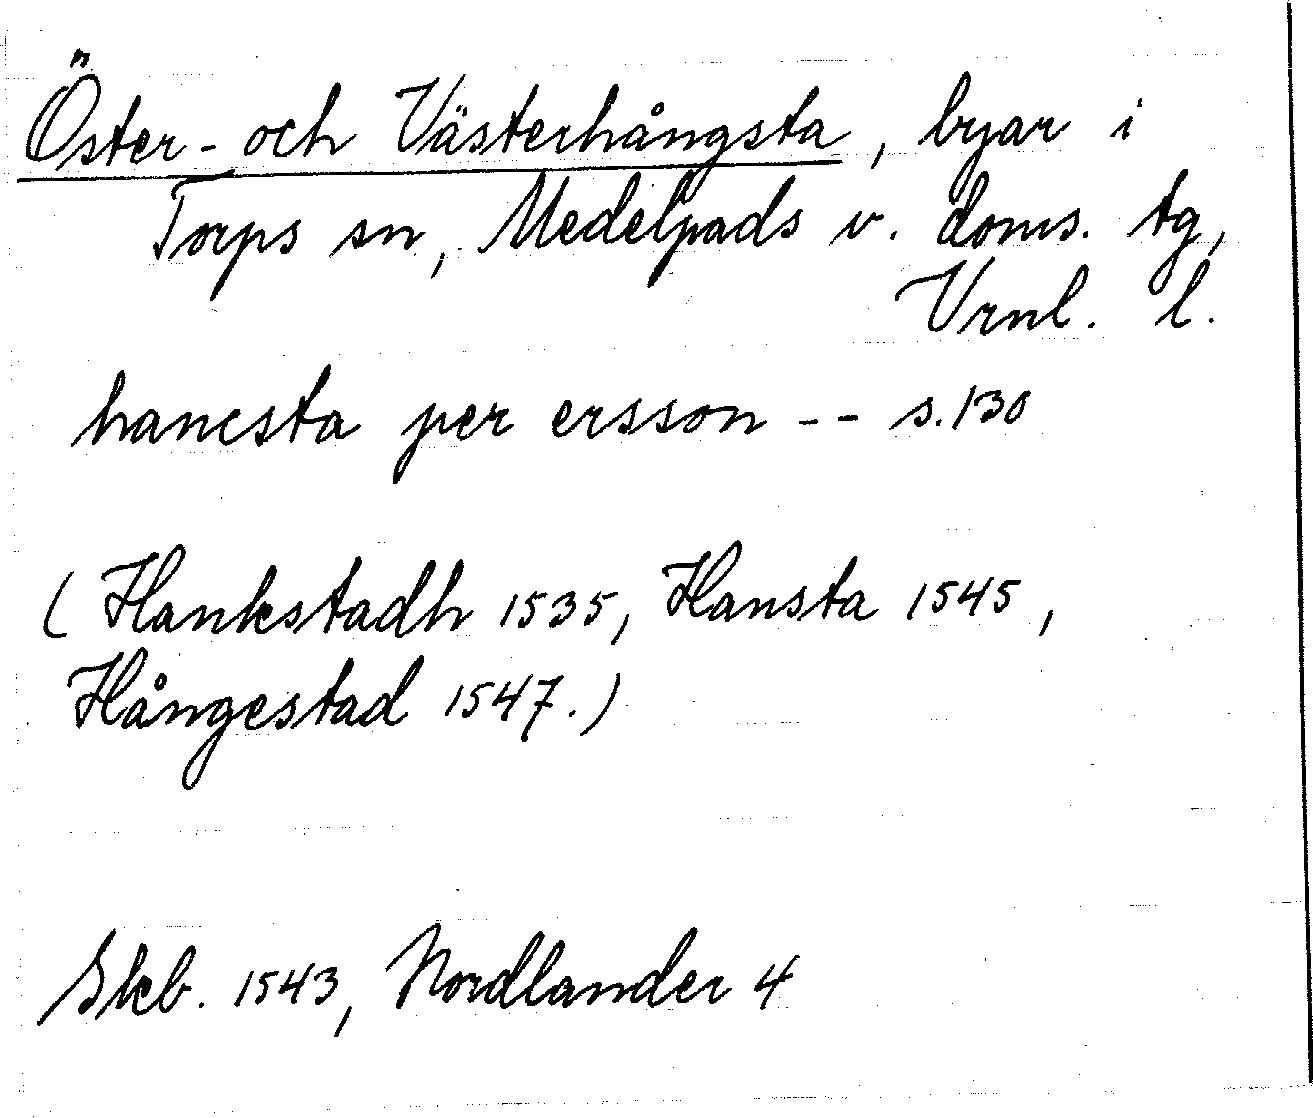 Öster- och Västerhångsta, byar i
Torps sn, Medelpads v. doms. tg,
Vrnl. l.
hancsta per ersson -- s.130
(Hankstadh 1535, Hansta 1545,
Hångestad 1547.)
Skb. 1543, Nordlander 4